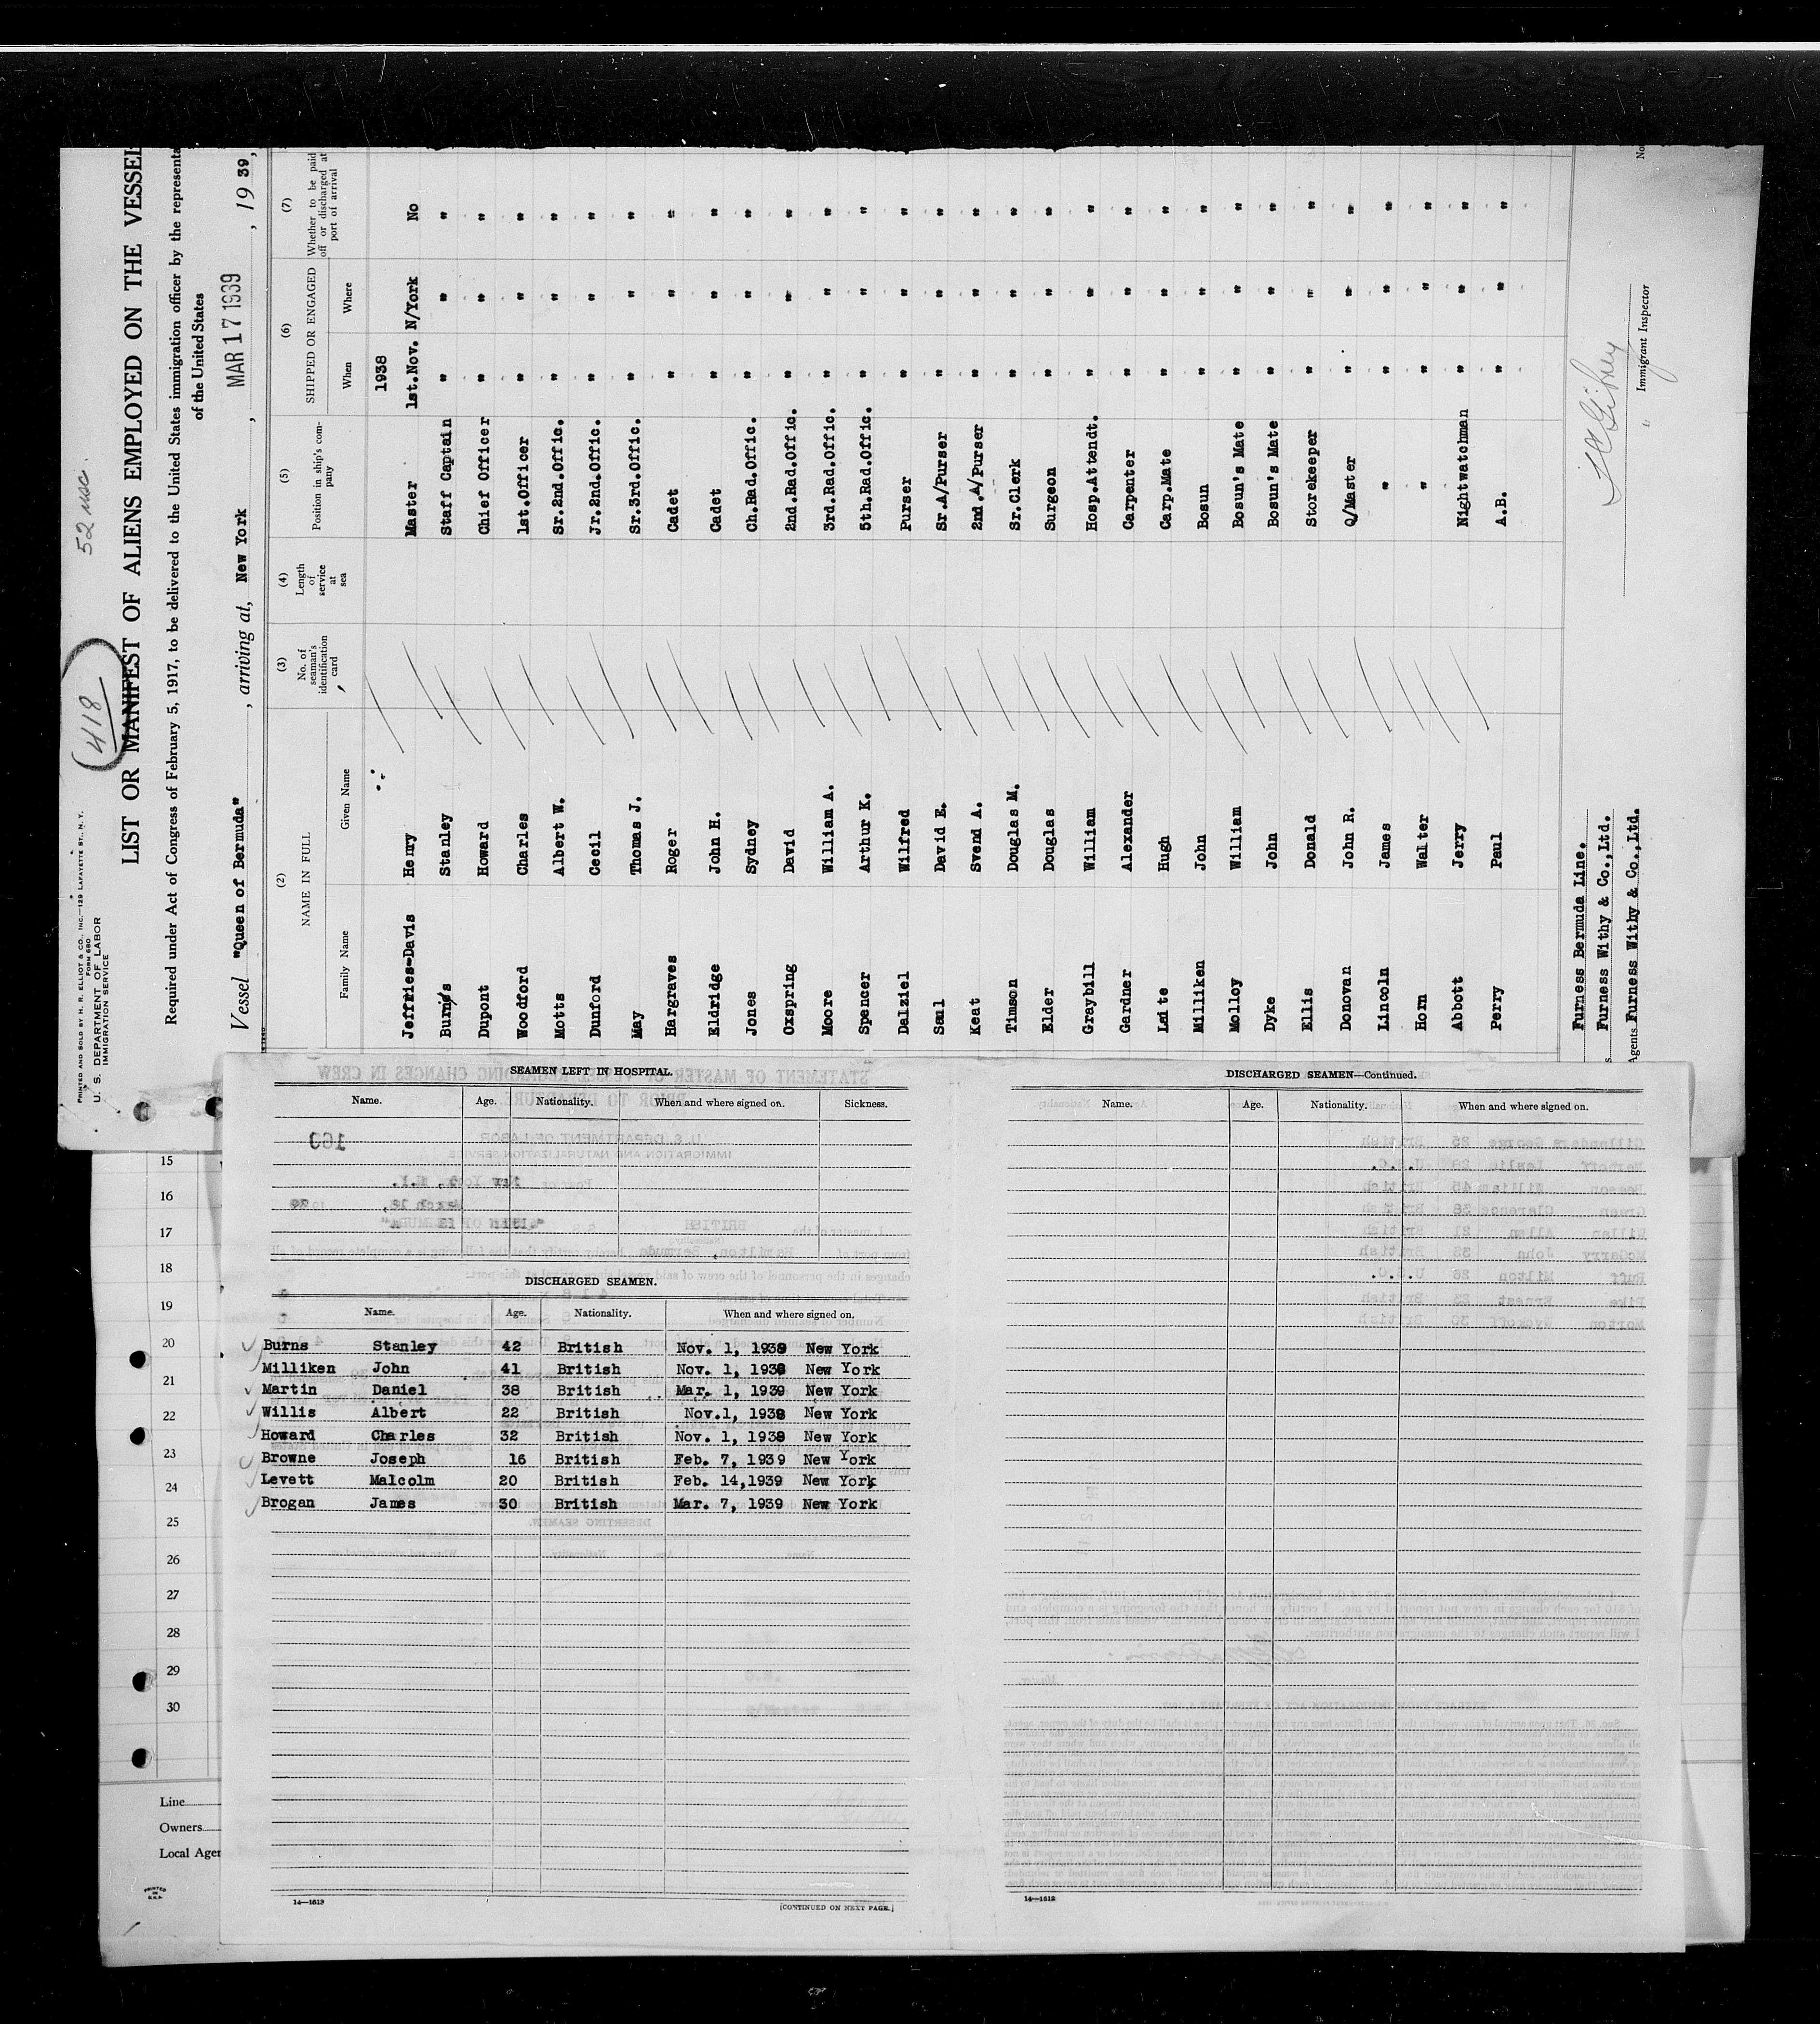 PRINTED AND SOLD BY H. R. ELLIOT & CO., INC.—129 LAFAYETTE ST., N. Y.
FORM 680
U. S. DEPARTMENT OF LABOR
IMMIGRATION SERVICE
418
52 usc.
LIST OR MANIFEST OF ALIENS EMPLOYED ON THE VESSEL
Required under Act of Congress of February 5, 1917, to be delivered to the United States immigration officer by the representa
of the United States
Vessel "Queen of Bermuda", arriving at, New York, MAR 17 1939, 19 39,
(2) (3) (4) (5) (6) (7)
NAME IN FULL No. of seaman's identification card Length of service at sea Position in ship's company SHIPPED OR ENGAGED Whether to be paid off or discharged at port of arrival
Family Name Given Name When Where
1938
Jeffries-Davis Henry Master 1st.Nov. N/York No
Burns Stanley Staff Captain " " "
Dupont Howard Chief Officer " " "
Woodford Charles 1st.Officer " " "
Motts Albert W. Sr.2nd.Offic. " " "
Dunford Cecil Jr.2nd.Offic. " " "
May Thomas J. Sr.3rd.Offic. " " "
Hargraves Roger Cadet " " "
Eldridge John H. Cadet " " "
Jones Sydney Ch.Rad.Offic. " " "
Oxspring David 2nd.Rad.Offic. " " "
Moore William A. 3rd.Rad.Offic. " " "
Spencer Arthur K. 5th.Rad.Offic. " " "
Dalziel Wilfred Purser " " "
Saul David E. Sr.A/Purser " " "
Keat Svend A. 2nd.A/Purser " " "
Timson Douglas M. Sr.Clerk " " "
Elder Douglas Surgeon " " "
Graybill William Hosp.Attendt. " " "
Gardner Alexander Carpenter " " "
Laite Hugh Carp.Mate " " "
Milliken John Bosun " " "
Molloy William Bosun's Mate " " "
Dyke John Bosun's Mate " " "
Ellis Donald Storekeeper " " "
Donovan John R. Q/Master " " "
Lincoln James " " " "
Horn Walter " " " "
Abbott Jerry Nightwatchman " " "
Perry Paul A.B. " " "
Furness Bermuda Line.
Furness Withy & Co.,Ltd.
Agents Furness Withy & Co.,Ltd.
Immigrant Inspector
SEAMEN LEFT IN HOSPITAL.
Name. Age. Nationality. When and where signed on. Sickness.
DISCHARGED SEAMEN.
Name. Age. Nationality. When and where signed on.
Burns Stanley 42 British Nov. 1, 1938 New York
Milliken John 41 British Nov. 1, 1938 New York
Martin Daniel 38 British Mar. 1, 1939 New York
Willis Albert 22 British Nov.1, 1938 New York
Howard Charles 32 British Nov. 1, 1938 New York
Browne Joseph 16 British Feb. 7, 1939 New York
Levett Malcolm 20 British Feb. 14,1939 New York
Brogan James 30 British Mar. 7, 1939 New York
14—1613
[CONTINUED ON NEXT PAGE.]
DISCHARGED SEAMEN—Continued.
Name. Age. Nationality. When and where signed on.
14—1613
15
16
17
18
19
20
21
22
23
24
25
26
27
28
29
30
Line
Owners
Local Agen
PRINTED
IN
U.S.A.